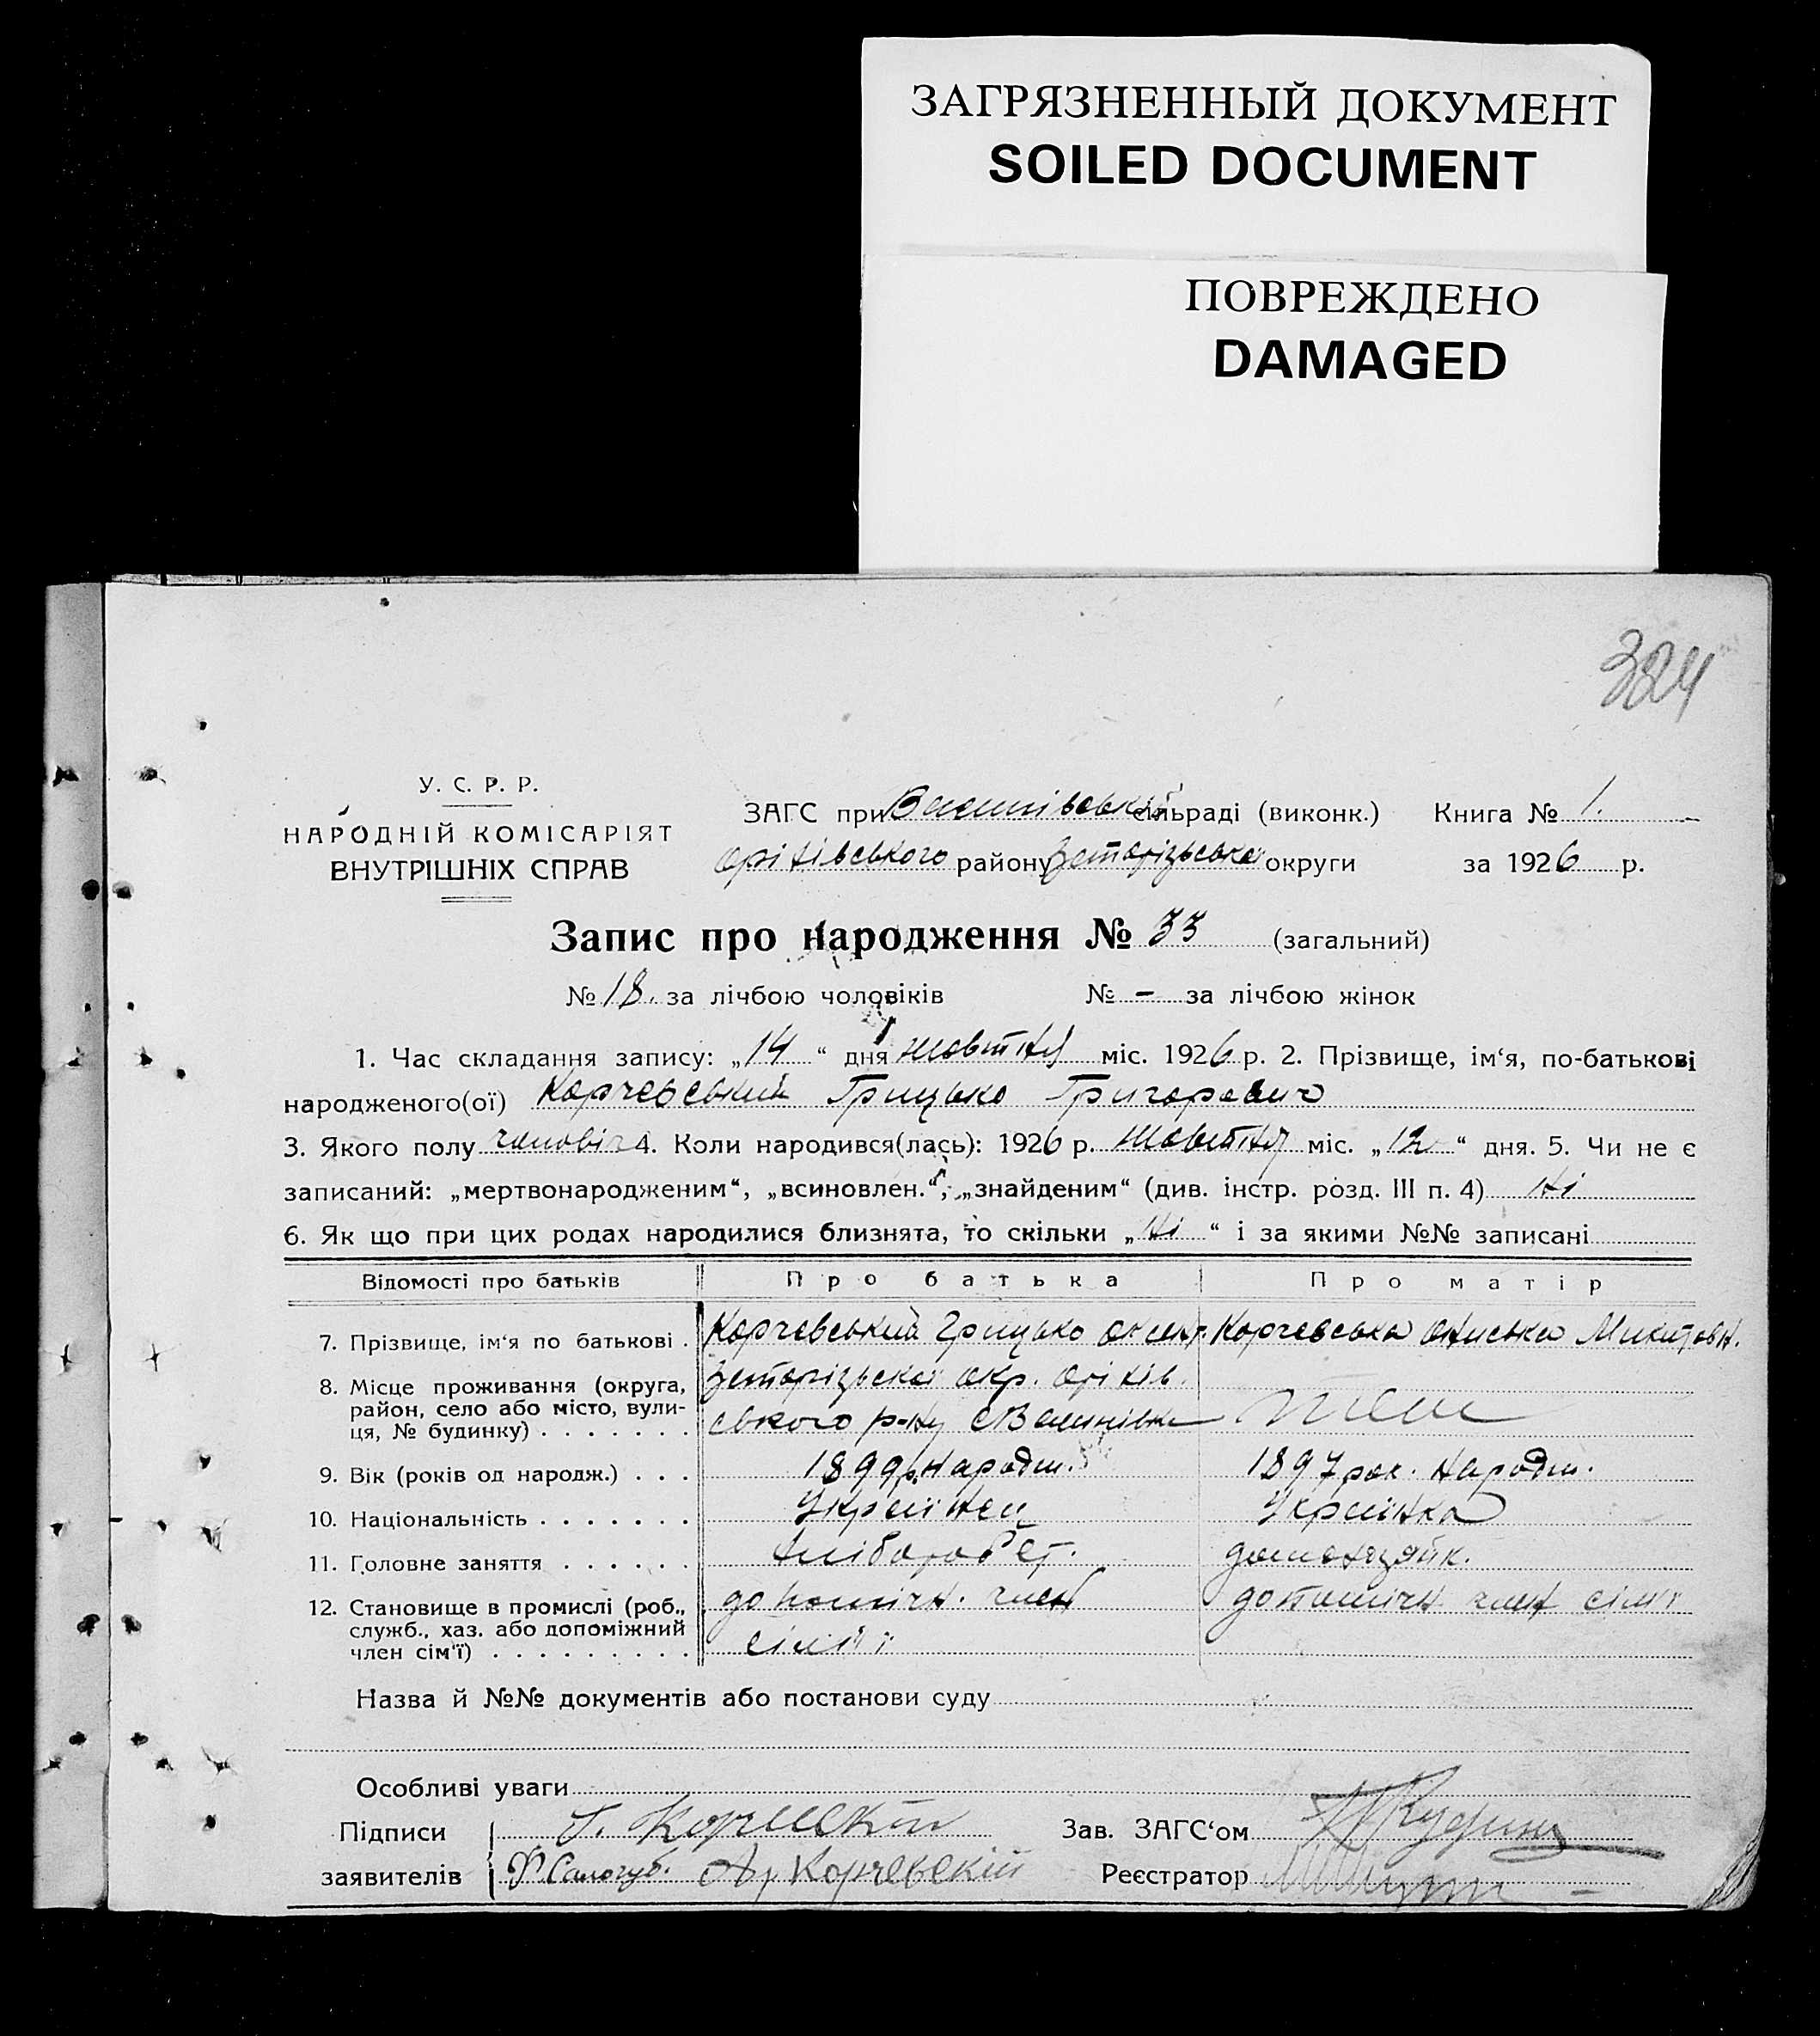 ЗАГРЯЗНЕННЫЙ ДОКУМЕНТ
SOILED DOCUMENT
ПОВРЕЖДЕНО
DAMAGED
324
У. С. Р. Р.
НАРОДНІЙ КОМІСАРІЯТ
ВНУТРІШНІХ СПРАВ
ЗАГС при сільраді (виконк.) Книга № 1.
Оріхівського району округи за 1926 р.
Запис про народження № 33 (загальний)
№ 18. за лічбою чоловіків № - за лічбою жінок
1. Час складання запису: „14“ дня жовтня міс. 1926 р. 2. Прізвище, ім‘я, по-батькові
народженого(ої) Корчевський Грицько Григорович
3. Якого полу чоловіч 4. Коли народився(лась): 1926 р. жовтня міс. „12“ дня. 5. Чи не є
записаний: „мертвонародженим“, „всиновлен.“, „знайденим“ (див. інстр. розд. III п. 4) ні
6. Як що при цих родах народилися близнята, то скільки „ні“ і за якими №№ записані
Відомості про батьків Про батька Про матір
7. Прізвище, ім‘я по батькові . Корчевський Грицько Корчевська Ониська Микитовн.
8. Місце проживання (округа, район, село або місто, вули-ця, № будинку) . . . . . . . окр. Оріхів.
ського р-ну
9. Вік (років од народж.) . . . 1899р. народж. 1897 рок. народж.
10. Національність . . . . . . . Українец Українка
11. Головне заняття . . . . . . хліборобст. домохазяйк.
12. Становище в промислі (роб., служб., хаз. або допоміжний член сім‘ї) . . . . . . . . . допоміжн. член сім'ї допоміжн член сім'ї
Назва й №№ документів або постанови суду
Особливі уваги
Підписи Г. Зав. ЗАГС‘ом
заявителів Ф. Самогуб. Корчевскій Реєстратор